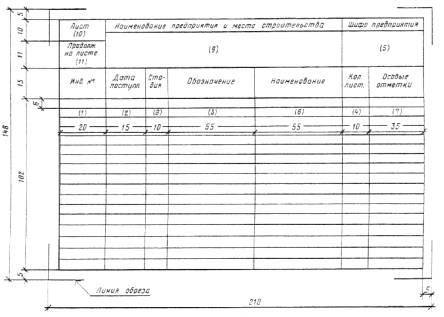 Лист
(10)
Наименование предприятия и место строительства
Шифр предприятия
Продолж
на листе
(11)
(9)
(5)
Инв №
Дата
поступл
Ста-
дия
Обозначение
Наименование
Кол
лист.
Особые
отметки
(1) (2) (3) (5) (6) (4) (7)
20 15 10 55 55 10 35
5
10
11
15
6
148
102
5
Линия обреза
5
210